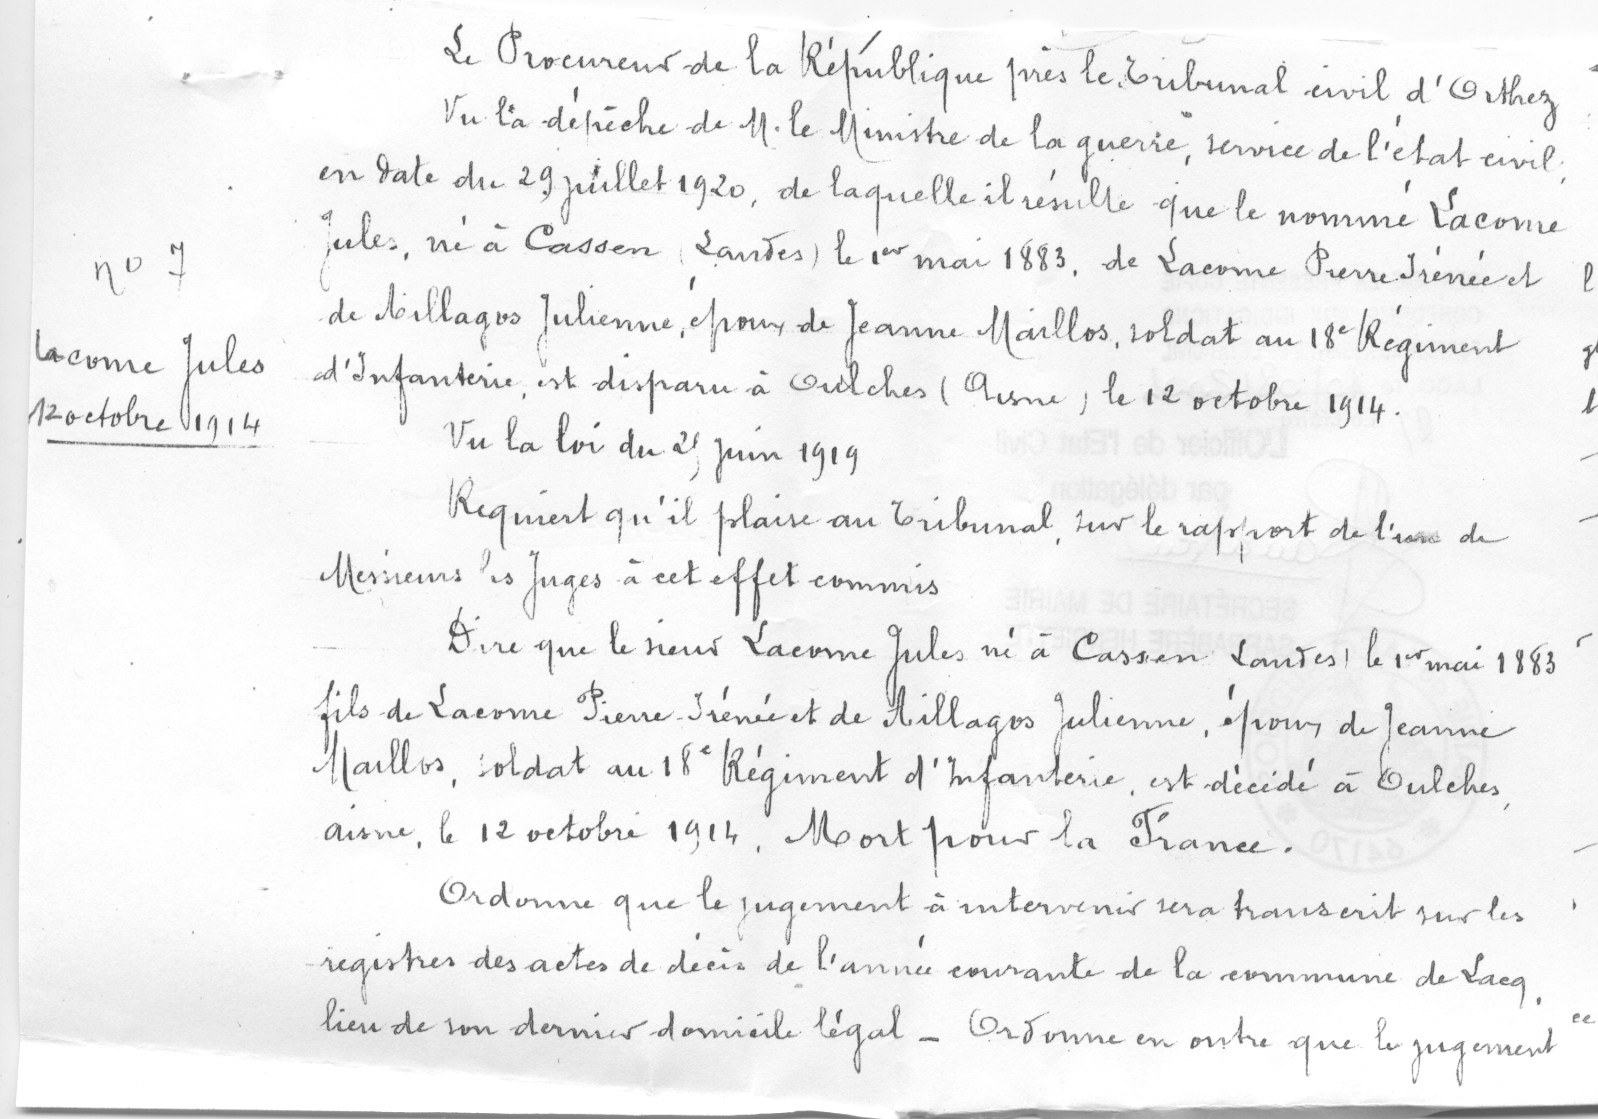 Le Procureur de la République près le Tribunal civil d'Orthez
Vu la dépêche de M. le Ministre de la guerre, service de l'état civil,
en date du 29 juillet 1920, de laquelle il résulte que le nommé Lacome
Jules, né à Cassen (Landes) le 1er mai 1883, de Lacome Pierre Irénée et
de Millagos Julienne, époux de Jeanne Maillos, soldat au 18e Régiment
d'Infanterie, est disparu à Oulches (Aisne) le 12 octobre 1914.
n° 7
Lacome Jules
12 octobre 1914
Vu la loi du 25 juin 1919
Requiert qu'il plaise au Tribunal, sur le rapport de l'un de
Messieurs les Juges à cet effet commis
Dire que le sieur Lacome Jules né à Cassen Landes) le 1er mai 1883
fils de Lacome Pierre Irénée et de Millagos Julienne, époux de Jeanne
Maillos, soldat au 18e Régiment d'Infanterie, est décédé à Oulches,
aisne, le 12 octobre 1914, Mort pour la France.
Ordonne que le jugement à intervenir sera transcrit sur les
registres des actes de décès de l'année courante de la commune de Lacq,
lieu de son dernier domicile légal - Ordonne en outre que le jugement